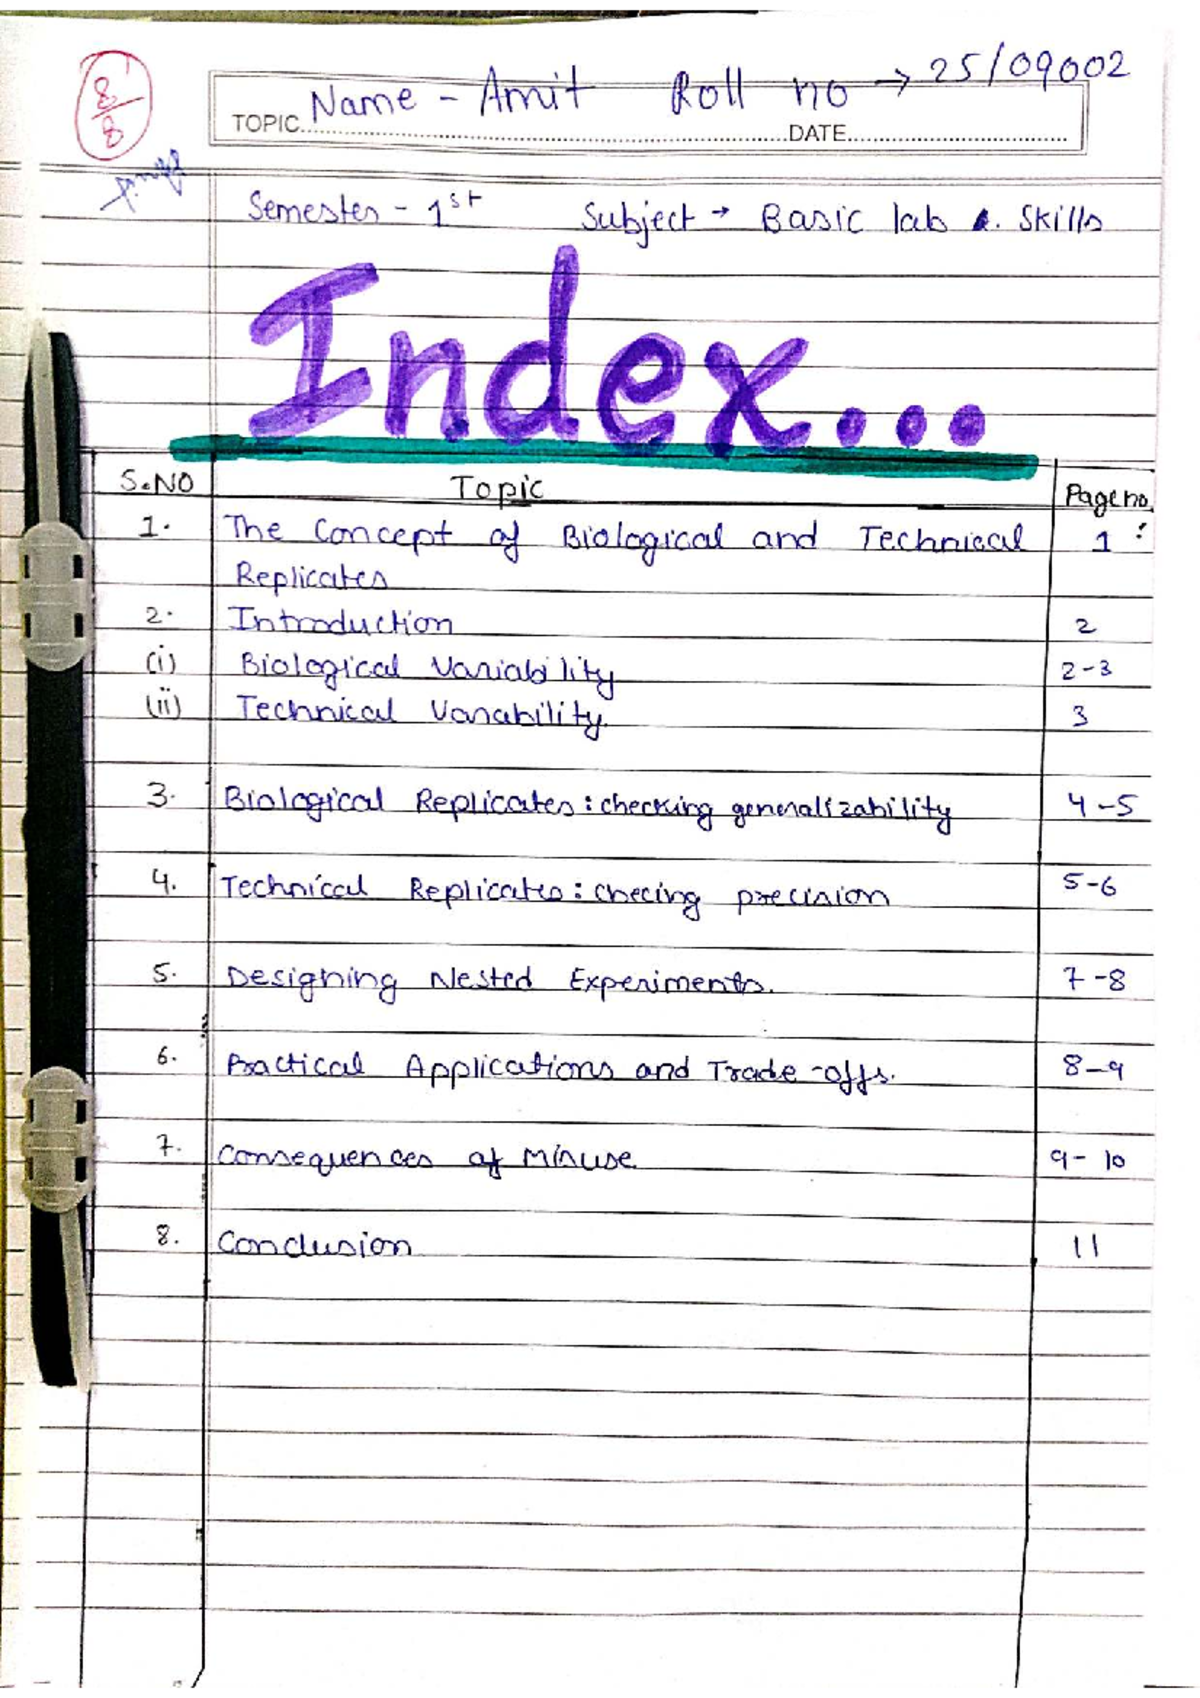 8/8
Name - Amit Roll no → 25/09002
TOPIC..........DATE..........
Semester - 1st Subject → Basic lab . Skills
Index...
S.NO Topic Page no.
1. The Concept of Biological and Technical 1
Replicates
2. Introduction 2
(i) Biological Variability 2-3
(ii) Technical Variability. 3
3. Biological Replicates : checking generalizability 4-5
4. Technical Replicates : checing precision 5-6
5. Designing Nested Experiments. 7-8
6. Practical Applications and Trade-offs. 8-9
7. Consequences of Misuse 9-10
8. Conclusion 11